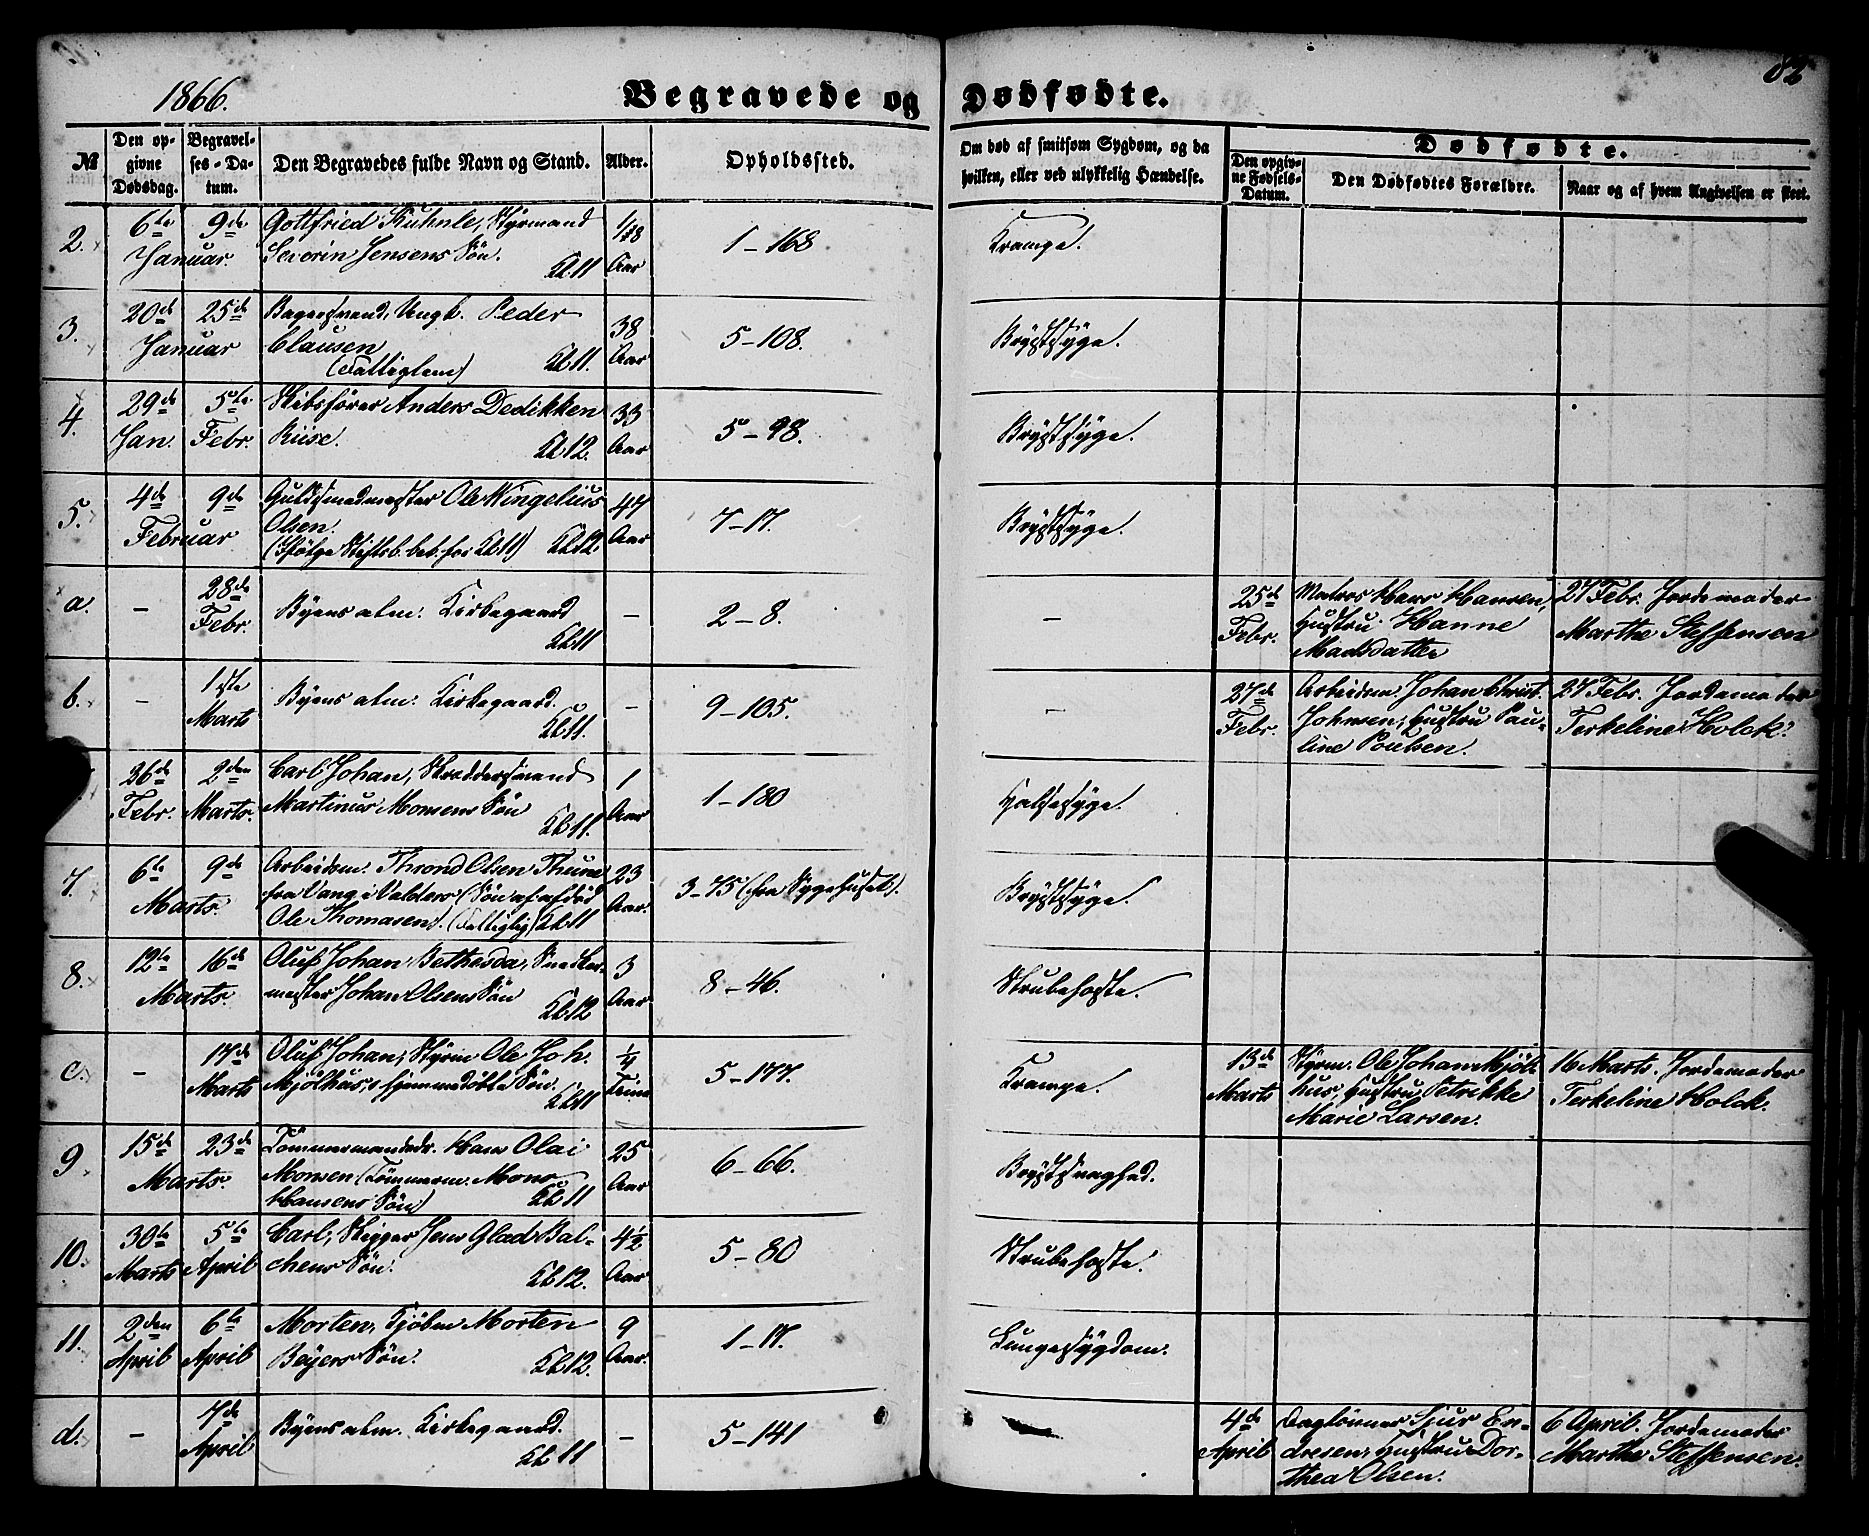 82
1866.
Begravede og Dødfødte.
№
Den op-
givne
Dødsdag.
Begravel-
ses-Da-
tum.
Den Begravedes fulde Navn og Stand.
Alder.
Opholdssted.
Om død af smitsom Sygdom, og da
hvilken, eller ved ulykkelig Hændelse.
Dødfødte.
Den opgiv-
ne Fødsels-
Datum.
Den Dødfødtes Forældre.
Naar og af hvem Angivelsen er skeet.
2.
6te 9de
Januar.
Gottfried Kuhnle, Styrmand
Severin Jensens Søn.
Kl. 11
Aar
1-168
Krampe.
3.
20de 25de
Januar
Bagersvend, Ungk. Peder
Clausen
(Fattiglem) Kl. 11.
38
Aar
5-108.
Brystsyge.
4.
29de
Jan.
5te
Febr.
Skibsfører Anders Dedikken
Riise. Kl. 12.
33
Aar
5-98.
Brystsyge.
5.
4de 9de
Februar
Guldsmedmester Ole Wingelius
Olsen.
(Ifølge Stiftsb. bet. for Kl. 11) Kl. 12.
47
Aar
7-17.
Brystsyge.
a.
-
28de
Febr.
Byens alm. Kirkegaard
Kl. 11
-
2-8.
-
25de
Febr.
Matros Hans Hansen,
Hustru Hanne
Madsdatter
27 Febr. Jordemoder
Marthe Steffensen
b.
-
1ste
Marts
Byens alm. Kirkegaard.
Kl. 11.
-
9-105.
-
27de
Febr.
Arbeidsm. Johan Christ.
Johnsen, Hustru Pau-
line Poulsen.
27 Febr. Jordemoder
Terkeline Holck.
26de
Febr.
2den
Marts.
Carl Johan, Skræddersvend
Martinus Monsens Søn
Kl. 11.
1
Aar
1-180
Halssyge.
7.
6te 9de
Marts.
Arbeidsm. Thrond Olsen Thune
fra Vang i Valders (Søn af afdød
Ole Thomasen). (Fattiglig) Kl. 11
23
Aar.
3-75 (fra Sygehuset).
Brystsyge.
8.
12te 16de
Marts.
Oluf Johan Bethesda, Snedker-
mester Johan Olsens Søn
Kl. 12
3
Aar
8-46.
Strubehoste.
c.
-
17de
Marts
Oluf Johan, Styrm Ole Joh.
Mjølhus, hjemmedøbte Søn.
Kl. 11
1/4
Time
5-177.
Krampe.
13de
Marts
Styrm. Ole Johan Mjøl-
hus, Hustru Petrikke
Marie Larsen.
16 Marts. Jordemoder
Terkeline Holck.
9
15de 23de
Marts.
Tømmermandsdr. Hans Olai
Monsen (Tømmerm. Mons
Hansens Søn) Kl. 11
25
Aar
6-66.
Brystsvaghed.
10.
30te
Marts
5te
April
Carl, Skipper Jens Glad Bal-
chens Søn. Kl. 12.
4½
Aar
5-80
Strubehoste.
11.
2den
April
6te
April
Morten, Kjøbm Morten
Beyers Søn. Kl. 12.
9
Aar.
1-17.
Lungesygdom.
d.
-
7de
April
Byens alm. Kirkegaard.
Kl. 11
-
5-141
-
4de
April
Dagløner Sjur En-
dresen, Hustru Dor-
thea Olsen.
6 April. Jordemoder
Marthe Steffensen.